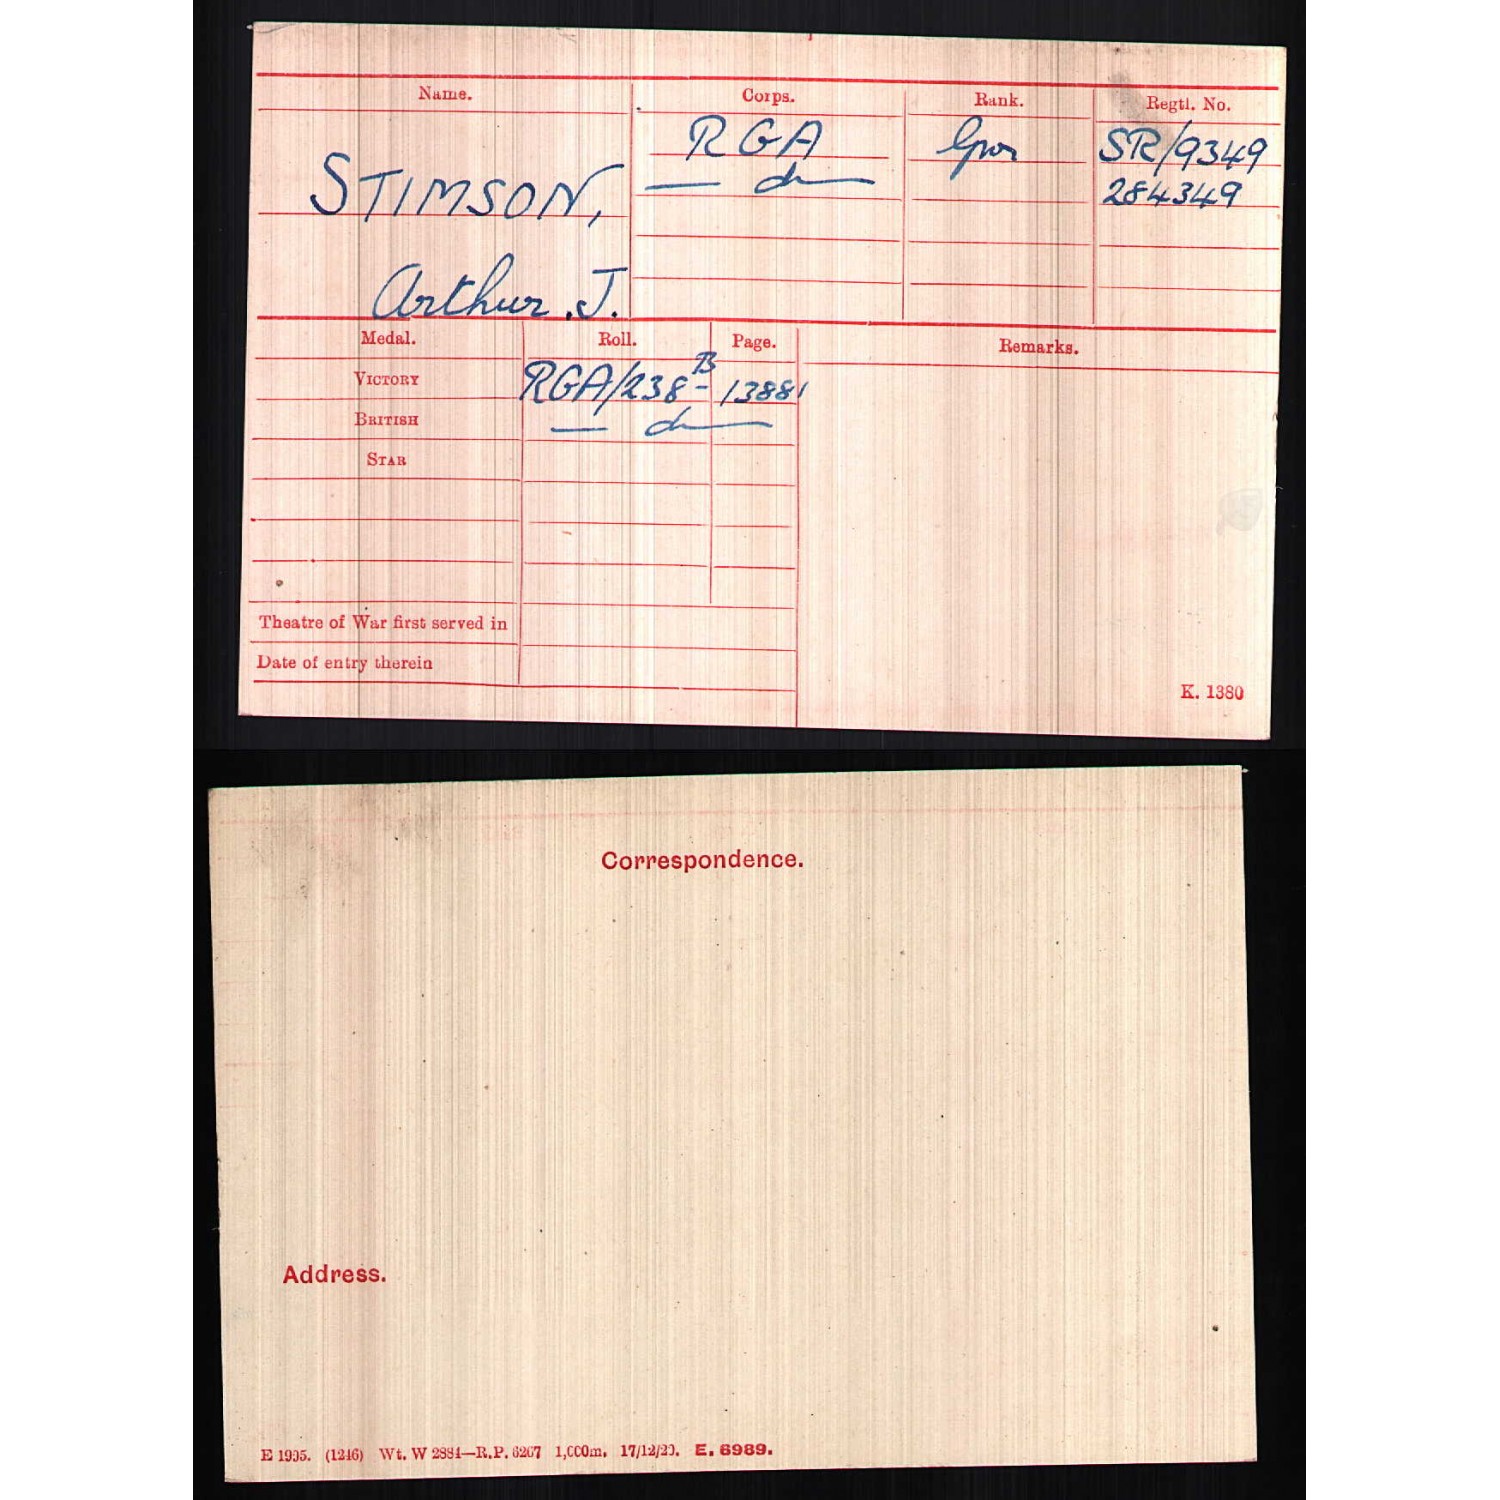 Name. Corps. Rank. Regtl. No.
STIMSON, RGA Gnr SR/9349
— do — 284349
Arthur. J.
Medal. Roll. Page. Remarks.
VICTORY RGA/238B 13881
BRITISH — do —
STAR
Theatre of War first served in
Date of entry therein
K. 1380
Correspondence.
Address.
E 1995. (1246) Wt. W 2884—R.P. 6267 1,000m. 17/12/20. E. 6989.